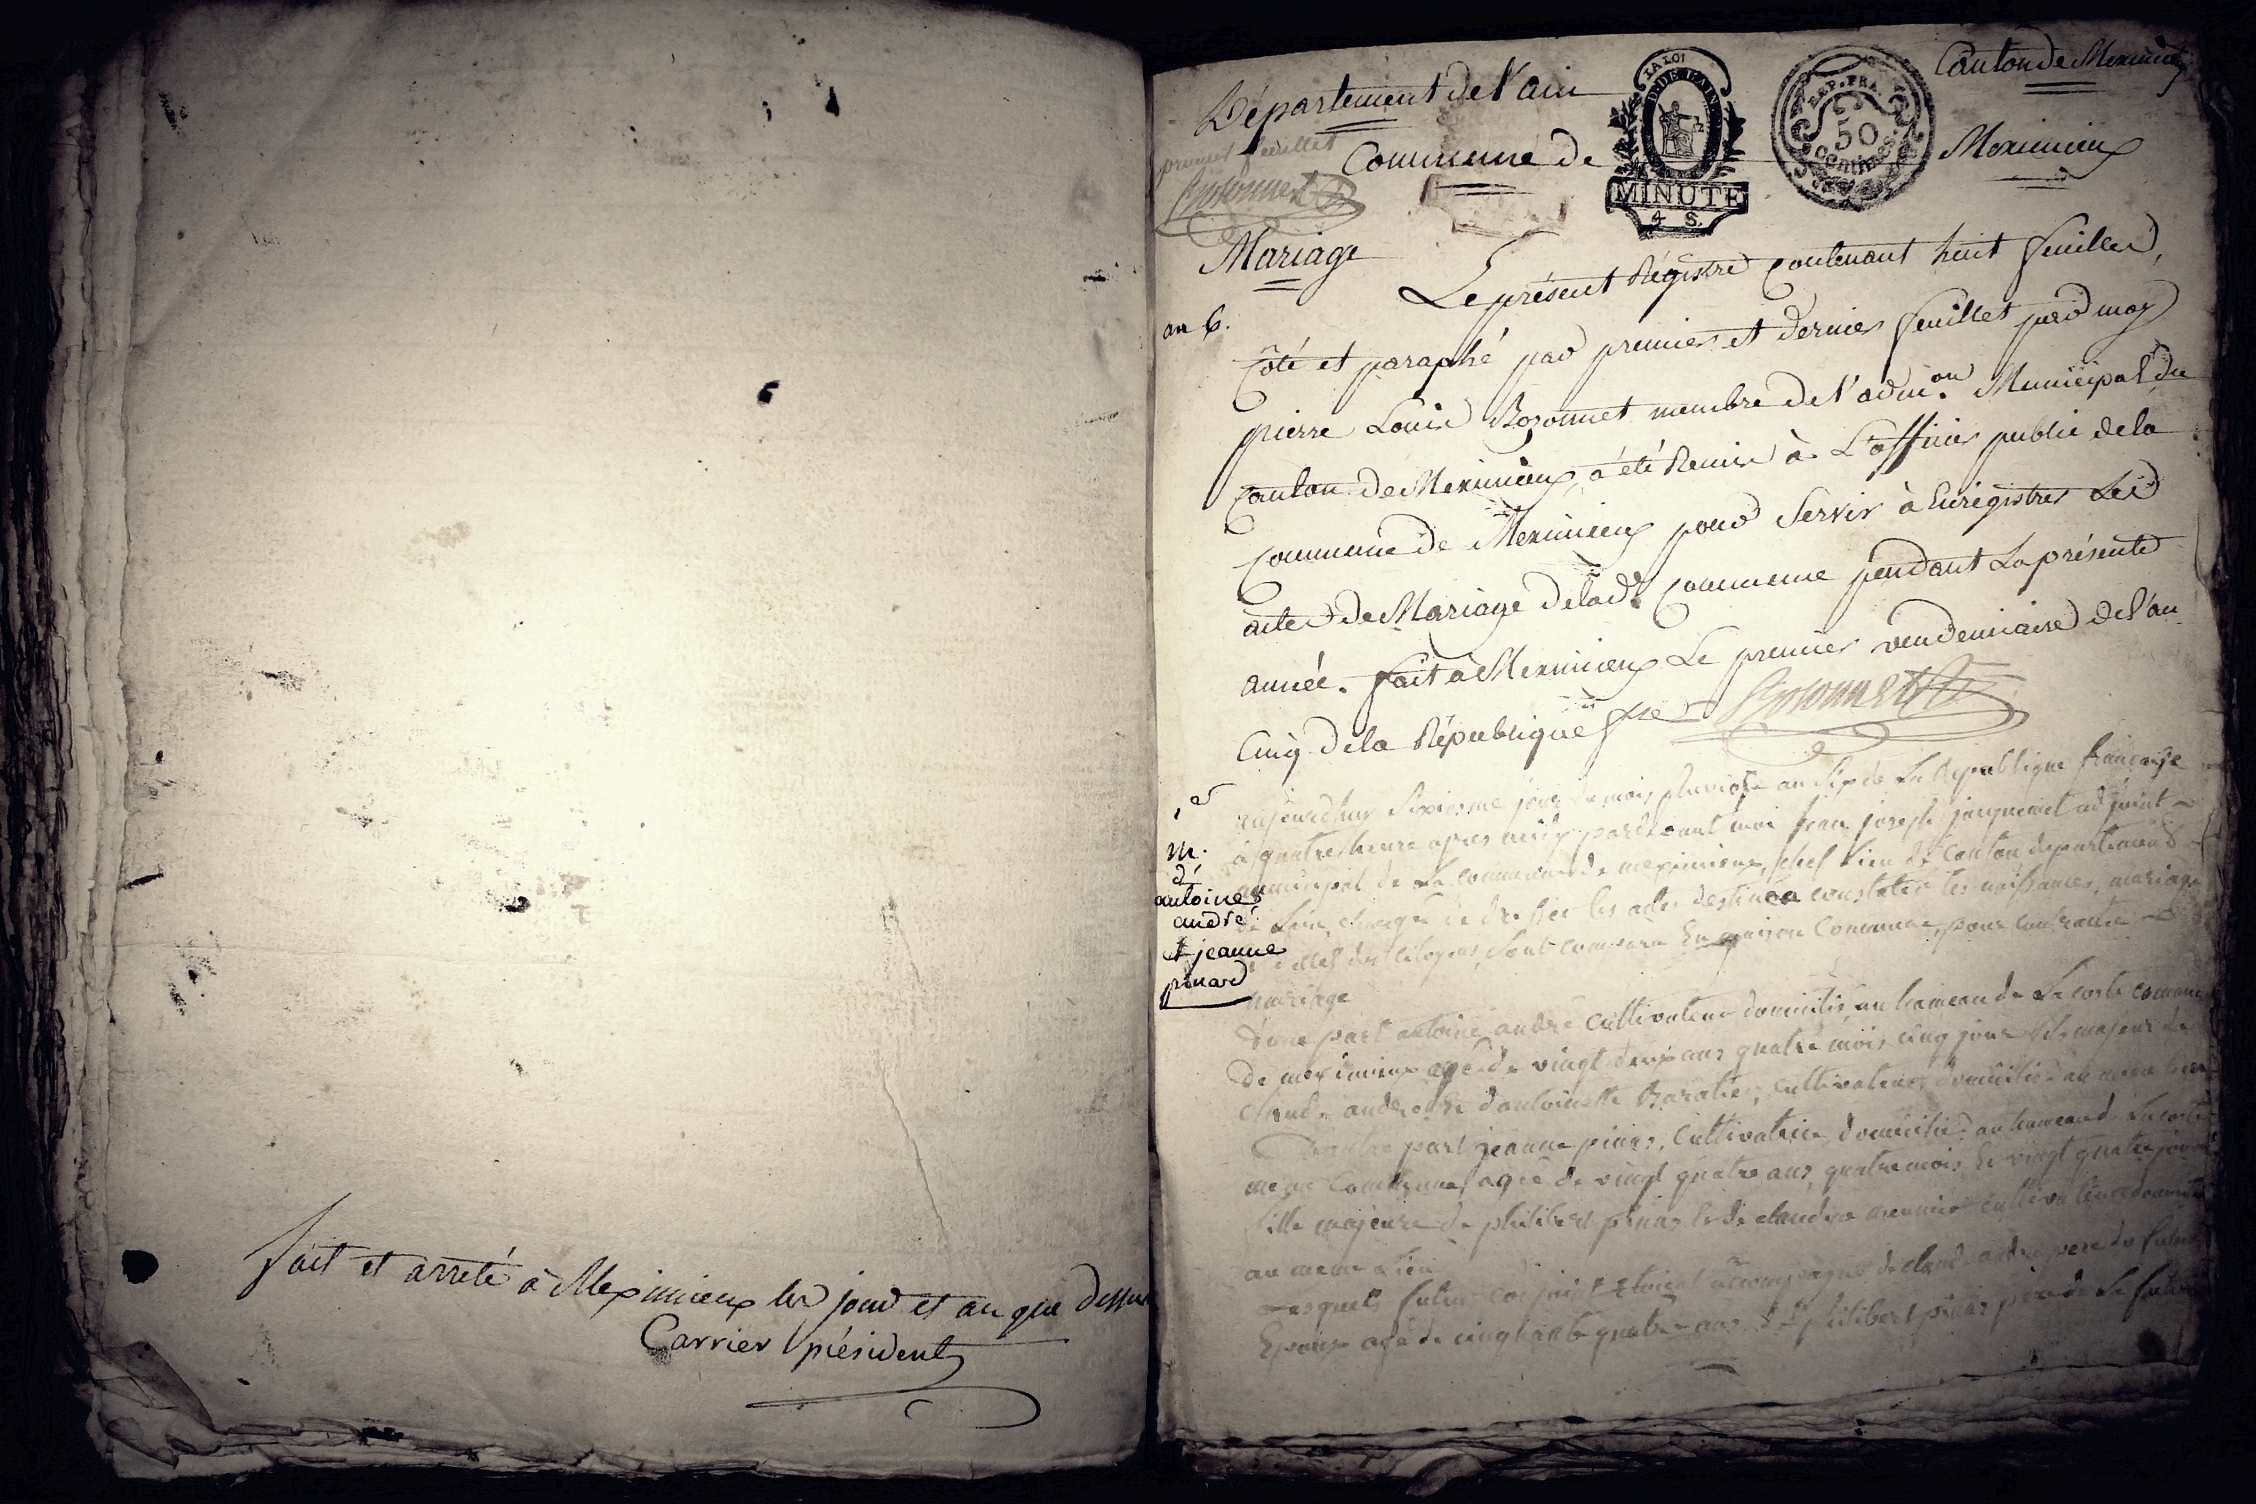 fait et arreté à Meximieux les jour et an que dessus
Carrier président
Département de l'ain
Canton de Meximieux
premier feuillet
Commune de
Meximieux
LA LOI
MINUTE
4 S.
REP. FRA.
50
centimes
Rozonnet
Mariage
an 6.
Le présent Régistre contenant huit feuillets,
Côté et paraphé par premier et dernier feuillet par moy
pierre Louis Rozonnet membre de l'admi.on Municipal du
Canton de Meximieux, a été Remis à L'officier public de la
commune de Meximieux pour Servir à Enrégistrer Les
actes de Mariage de lad.e Commune pendant La présente
année. fait a Meximieux Le premier vendemiaire de l'an
Cinq de la République f.se Rozonnet
1er
m.
d'
antoine
andré
et jeanne
pinard
aujourdhuy Sixiesme jour du mois pluviose an Six de La République française
à quatre heure apres midy pardevant moi jean joseph jacquemet adjoint
municipal de La commune de meximieux, chef lieu de Canton departement
de Lain, chargé de dresser les actes destinés a constater les naissances, mariage
et des citoyens, sont comparu En maison Commune, pour contracter
mariage
d'une part antoine andré Cultivateur domicilié au hameau de La coste commune
de meximieux agé de vingt deux ans quatre mois cinq jour fils majeur de
Claude andré et d'antoinette Baratier, cultivateurs domiciliés au meme lieu
D'autre part jeanne pinas, Cultivatrice, domiciliée au hameau de La coste
meme Commune, agée de vingt quatre ans, quatre mois, et vingt quatre jour
fille majeure de philibert pinas et de claudine meunier cultivateurs domiciliés
au meme Lieu
Lesquels futur conjoint etoient accompagnés de claude andré pere du futur
Epoux agé de cinquante quatre ans et philibert pinas pere de La future